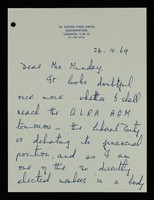 24.10.69
Dear Mrs Munday,
It looks doubtful
once more whether I shall
reach the A.L.R.A. AGM
tomorrow – the Liberal Party
is debating its financial
position, and as I am
one of the 30 directly
elected members in a body